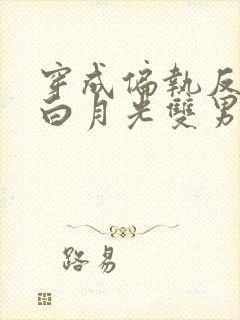 穿成偏執反
白月光雙男
路易